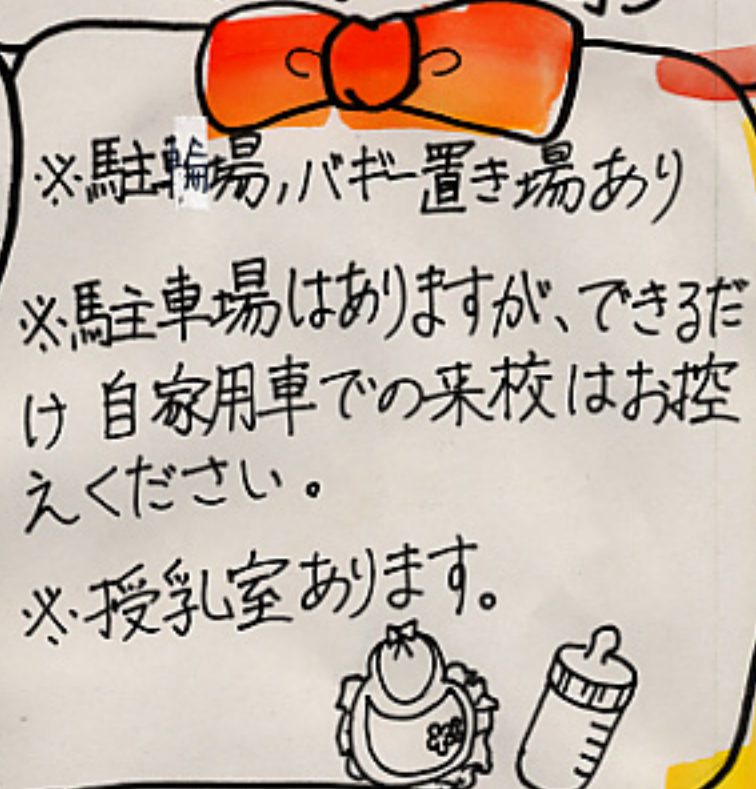 ※駐輪場,バギー置き場あり
※駐車場はありますが、できるだ
け自家用車での来校はお控
えください。
※授乳室あります。